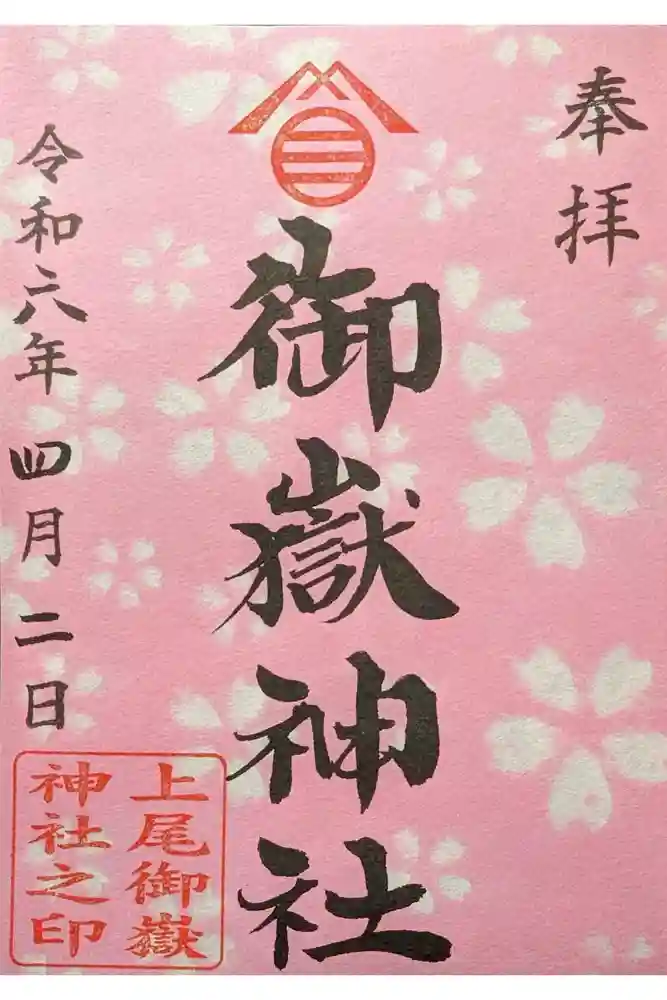 奉拝
御嶽神社
令和六年四月二日
上尾御嶽
神社之印